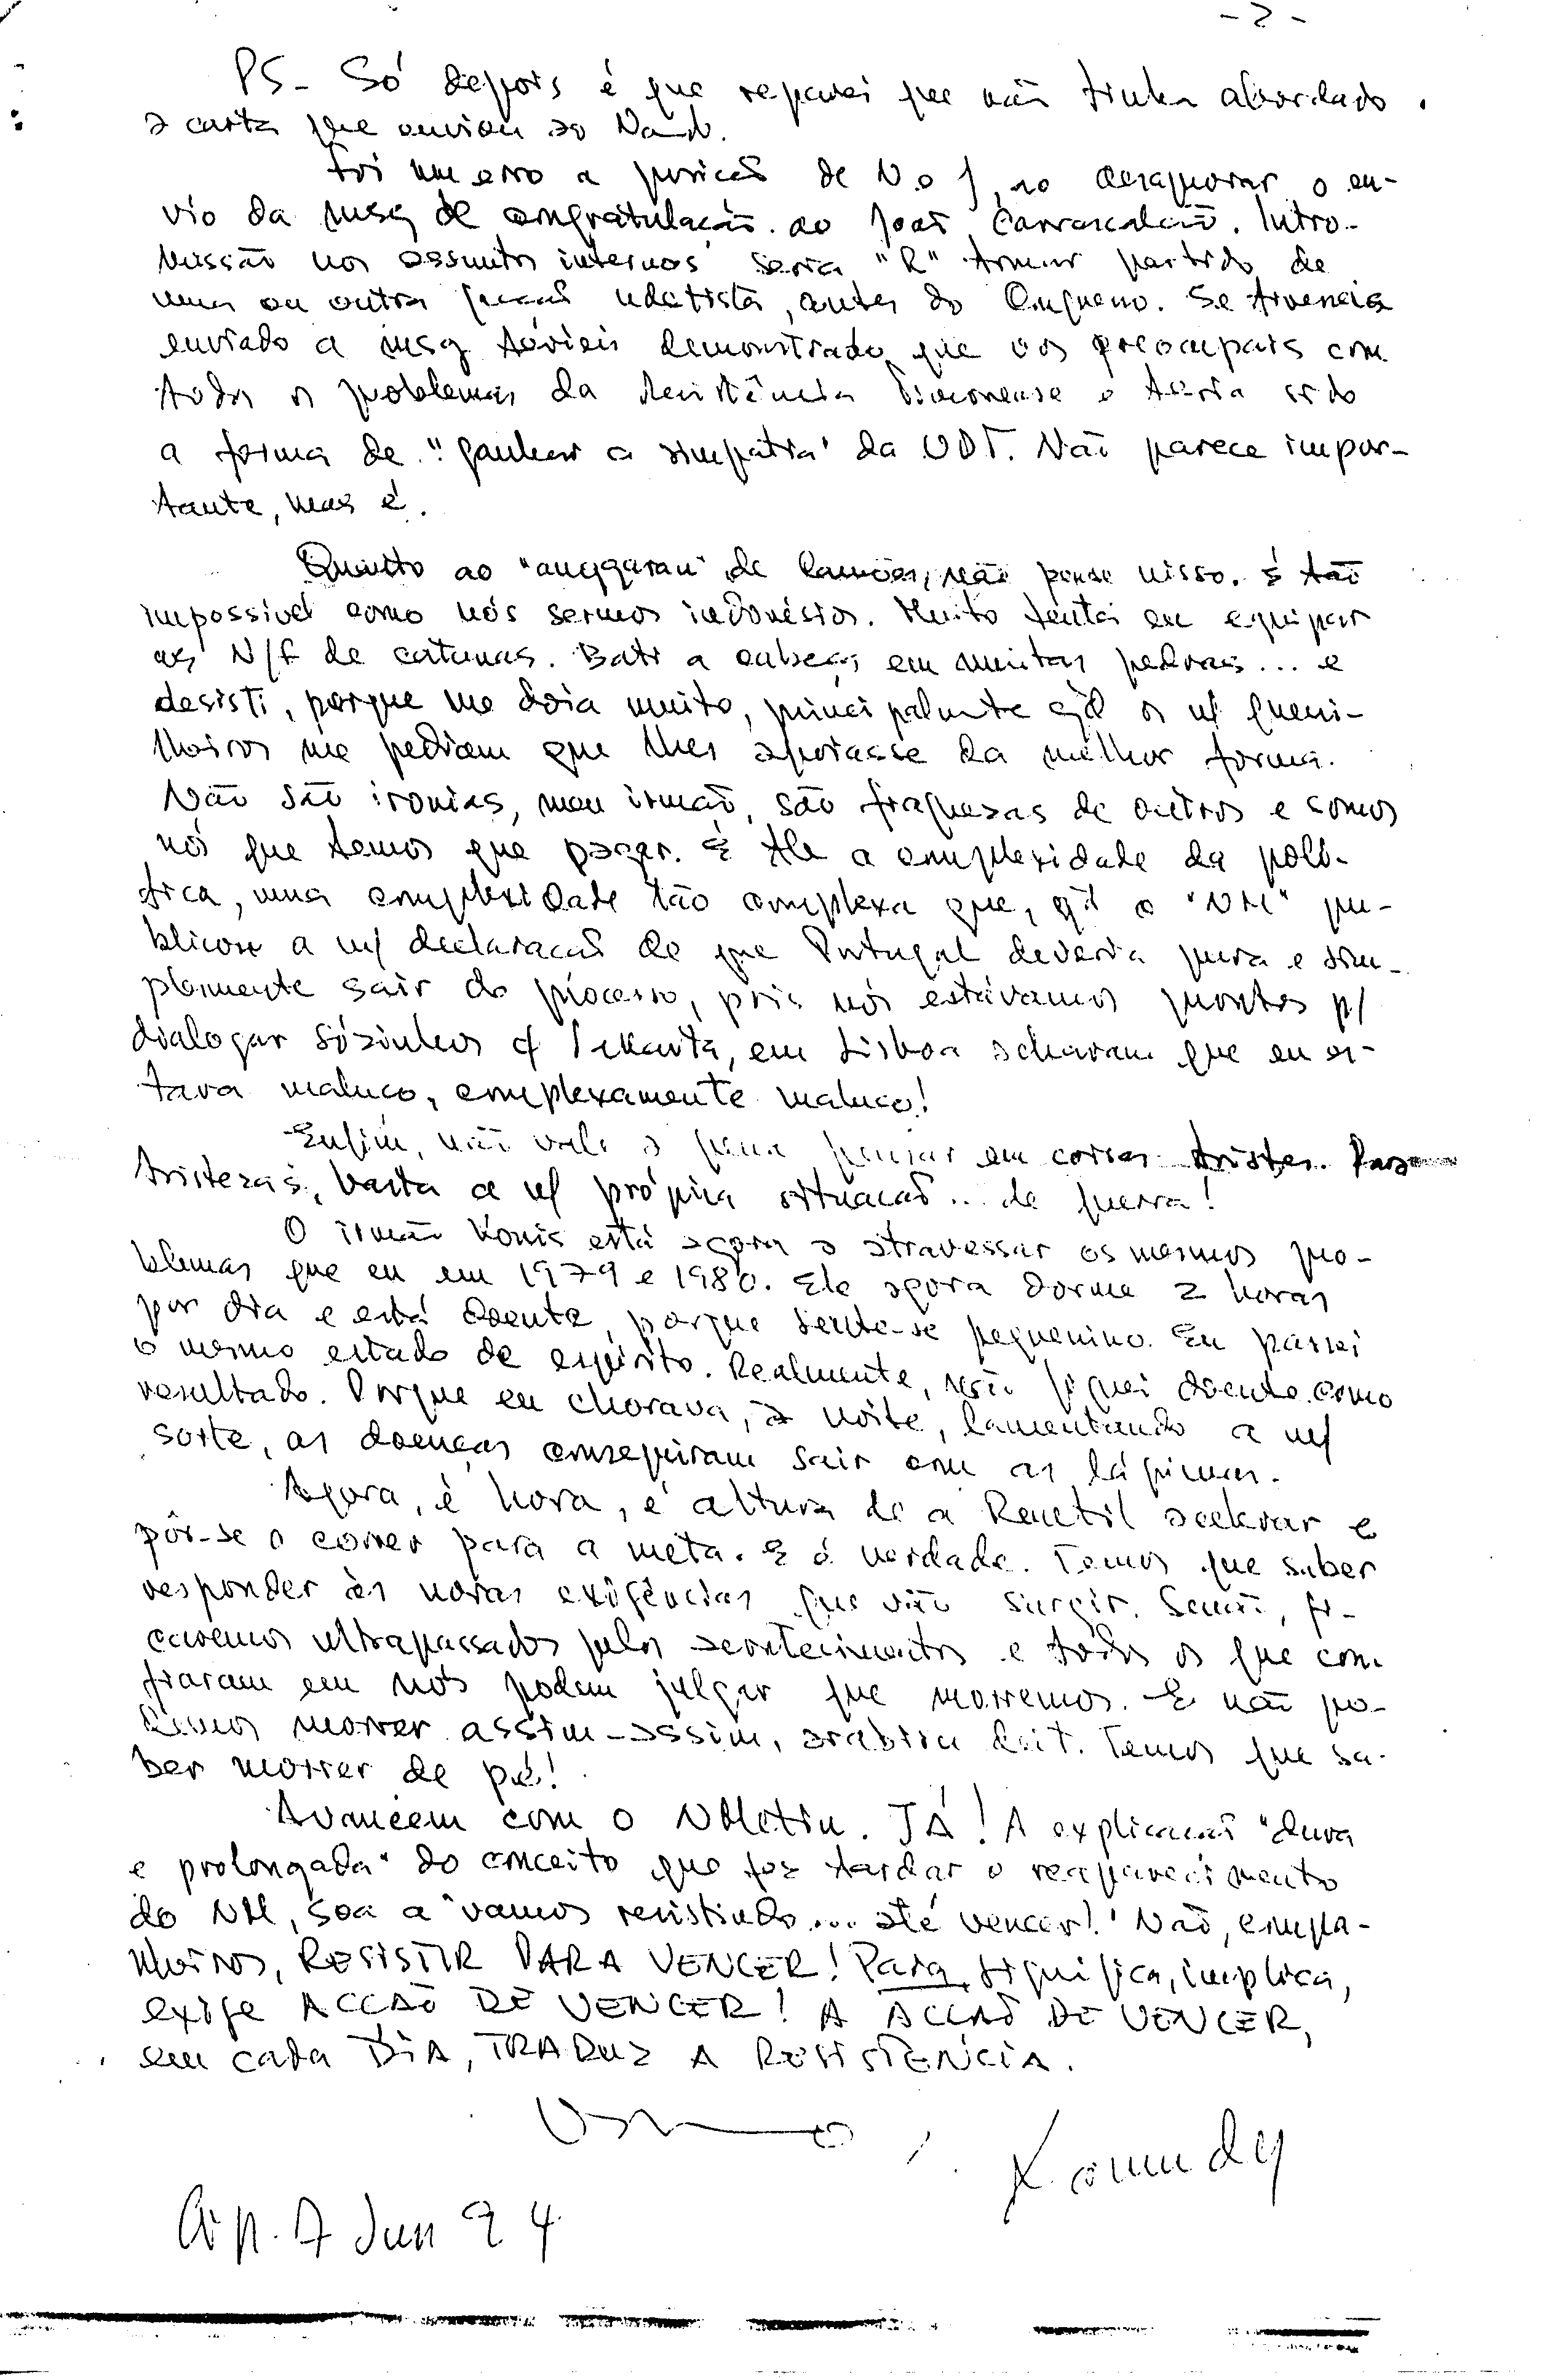 - 2 -
PS - Só depois é que reparei que não tinha abordado
a carta que enviou ao Nando.
Foi um erro a posição de N.o 1, ao desaprovar o en-
vio da msg de congratulação ao João Carrascalão. Intro-
missão nos assuntos internos seria "R" tomar partido de
uma ou outra facção udetista, antes do Congresso. Se tivesseis
enviado a msg terieis demonstrado que vos preocupais com
todos os problemas da Resistência Timorense e teria sido
a forma de "ganhar a simpatia" da UDT. Não parece impor-
tante, mas é.
Quanto ao "anggaran" de Camões, não pense nisso. É tão
impossível como nós sermos indonésios. Muito tentei eu equipar
as N/F de catanas. Bati a cabeça em muitas pedras... e
desisti, porque me doia muito, principalmente qdo os n/ guerri-
lheiros me pediam que lhes apoiasse da melhor forma.
Não são ironias, meu irmão, são fraquezas de outros e somos
nós que temos que pagar. É tal a complexidade da polí-
tica, uma complexidade tão complexa que, qdo o "NM" pu-
blicou a m/ declaração de que Portugal deveria pura e sim-
plesmente sair do processo, pois nós estávamos prontos p/
dialogar sózinhos c/ Jakarta, em Lisboa acharam que eu es-
tava maluco, complexamente maluco!
Enfim, não vale a pena pensar em coisas tristes. Para
tristezas, basta a n/ própria situação... de guerra!
O irmão Konis está agora a atravessar os mesmos pro-
blemas que eu em 1979 e 1980. Ele agora dorme 2 horas
por dia e está doente, porque sente-se pequenino. Eu passei
o mesmo estado de espírito. Realmente, não fiquei doente como
resultado. Porque eu chorava, à noite, lamentando a m/
sorte, as doenças conseguiram sair com as lágrimas.
Agora, é hora, é altura de a Renetil acelerar e
pôr-se a correr para a meta. E é verdade. Temos que saber
responder às novas exigências que vão surgir. Senão, fi-
caremos ultrapassados pelos acontecimentos e todos os que con-
fiaram em nós podem julgar que morremos. E não po-
demos morrer assim-assim, arabiru deit. Temos que sa-
ber morrer de pé!
Avancem com o NMetin. JÁ! A explicação "dura
e prolongada" do conceito que fez tardar o reaparecimento
do NM, soa a "vamos resistindo... até vencer!" Não, compa-
nheiros, RESISTIR PARA VENCER! Para, significa, implica,
exige ACCÃO DE VENCER! A ACCÃO DE VENCER,
em cada DIA, TRADUZ A RESISTÊNCIA.
Cip. 7 Jun 94